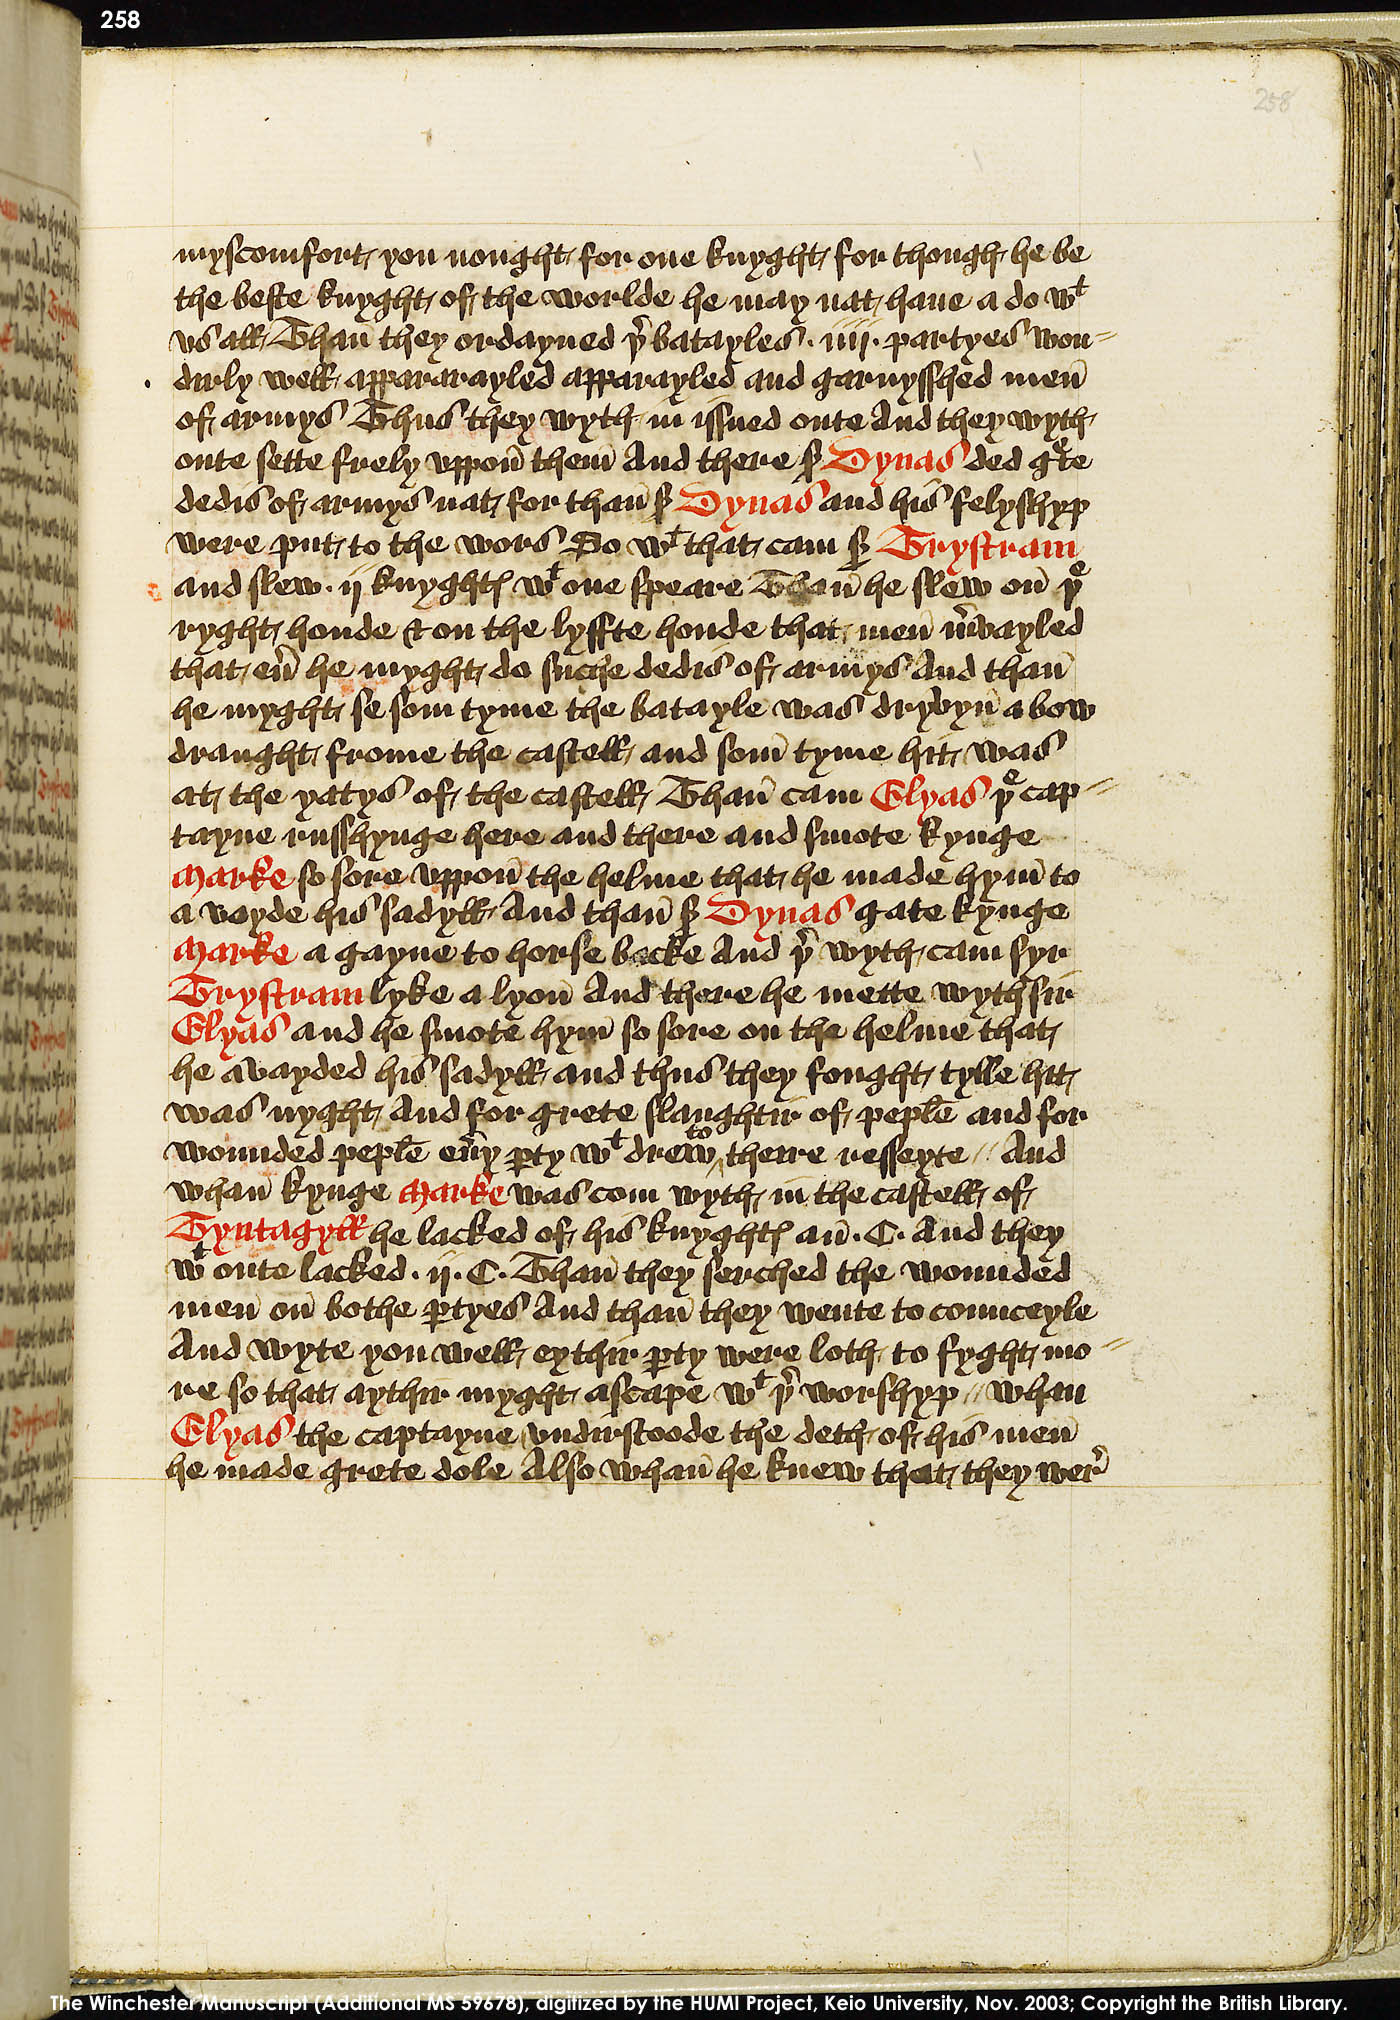 258
258
myscomfort you nought for one knyght for though he be
the beste knyght of the worlde he may nat haue a do wᵗ
vs all Than̄ they ordayned þʳ batayles · iiii · partyes won=
dirly well appararayled apparayled and garnysshed men̄
of armys Thus they wyth in issued oute And they wyth
oute sette frely vppon̄ them̄ And there sʳ Dynas ded gᵉte
dedis of armys nat for than̄ sʳ Dynas and his felyshyp
were put to the wors So wᵗ that cam sʳ Trystram
and slew · ij knyghtꝭ wᵗ one speare Than̄ he slew on̄ þᵉ
ryght honde & on the lyffte honde that men̄ mʳvayled
that eūr he myght do suche dedis of armys And than̄
he myght se som tyme the batayle was dryvyn̄ a bow
draught frome the castell and som̄ tyme hit was
at the yatys of the castell Than̄ cam Elyas þᵉ cap=
tayne russhynge here and there and smote kynge
Marke so sore vppon̄ the helme that he made hym̄ to
a voyde his sadyll And than̄ sʳ Dynas gate kynge
Marke a gayne to horse backe And þʳ wyth cam syr
Trystram lyke a lyon̄ And there he mette wyth sir
Elyas and he smote hym̄ so sore on the helme that
he avoyded his sadyll and thus they fought tylle hit
was nyght And for grete slaughtir of peple and for
wounded peple eūy ꝑty wᵗ drew to theire resseyte // And
whan̄ kynge Marke was com wyth in the castell of
Tyntagyll he lacked of his knyghtꝭ an̄ · C · And they
wᵗ oute lacked · ij · C · Than̄ they serched the wounded
men̄ on̄ bothe ꝑtyes And than̄ they wente to counceyle
And wyte you well eythir ꝑty were loth to fyght mo=
re so that aythir myght ascape wᵗ þʳ worshyp // whan
Elyas the captayne vndirstoode the deth of his men̄
he made grete dole Also whan̄ he knew that they werʳ
The Winchester Manuscript (Additional MS 59678), digitized by the HUMI Project, Keio University, Nov. 2003; Copyright the British Library.